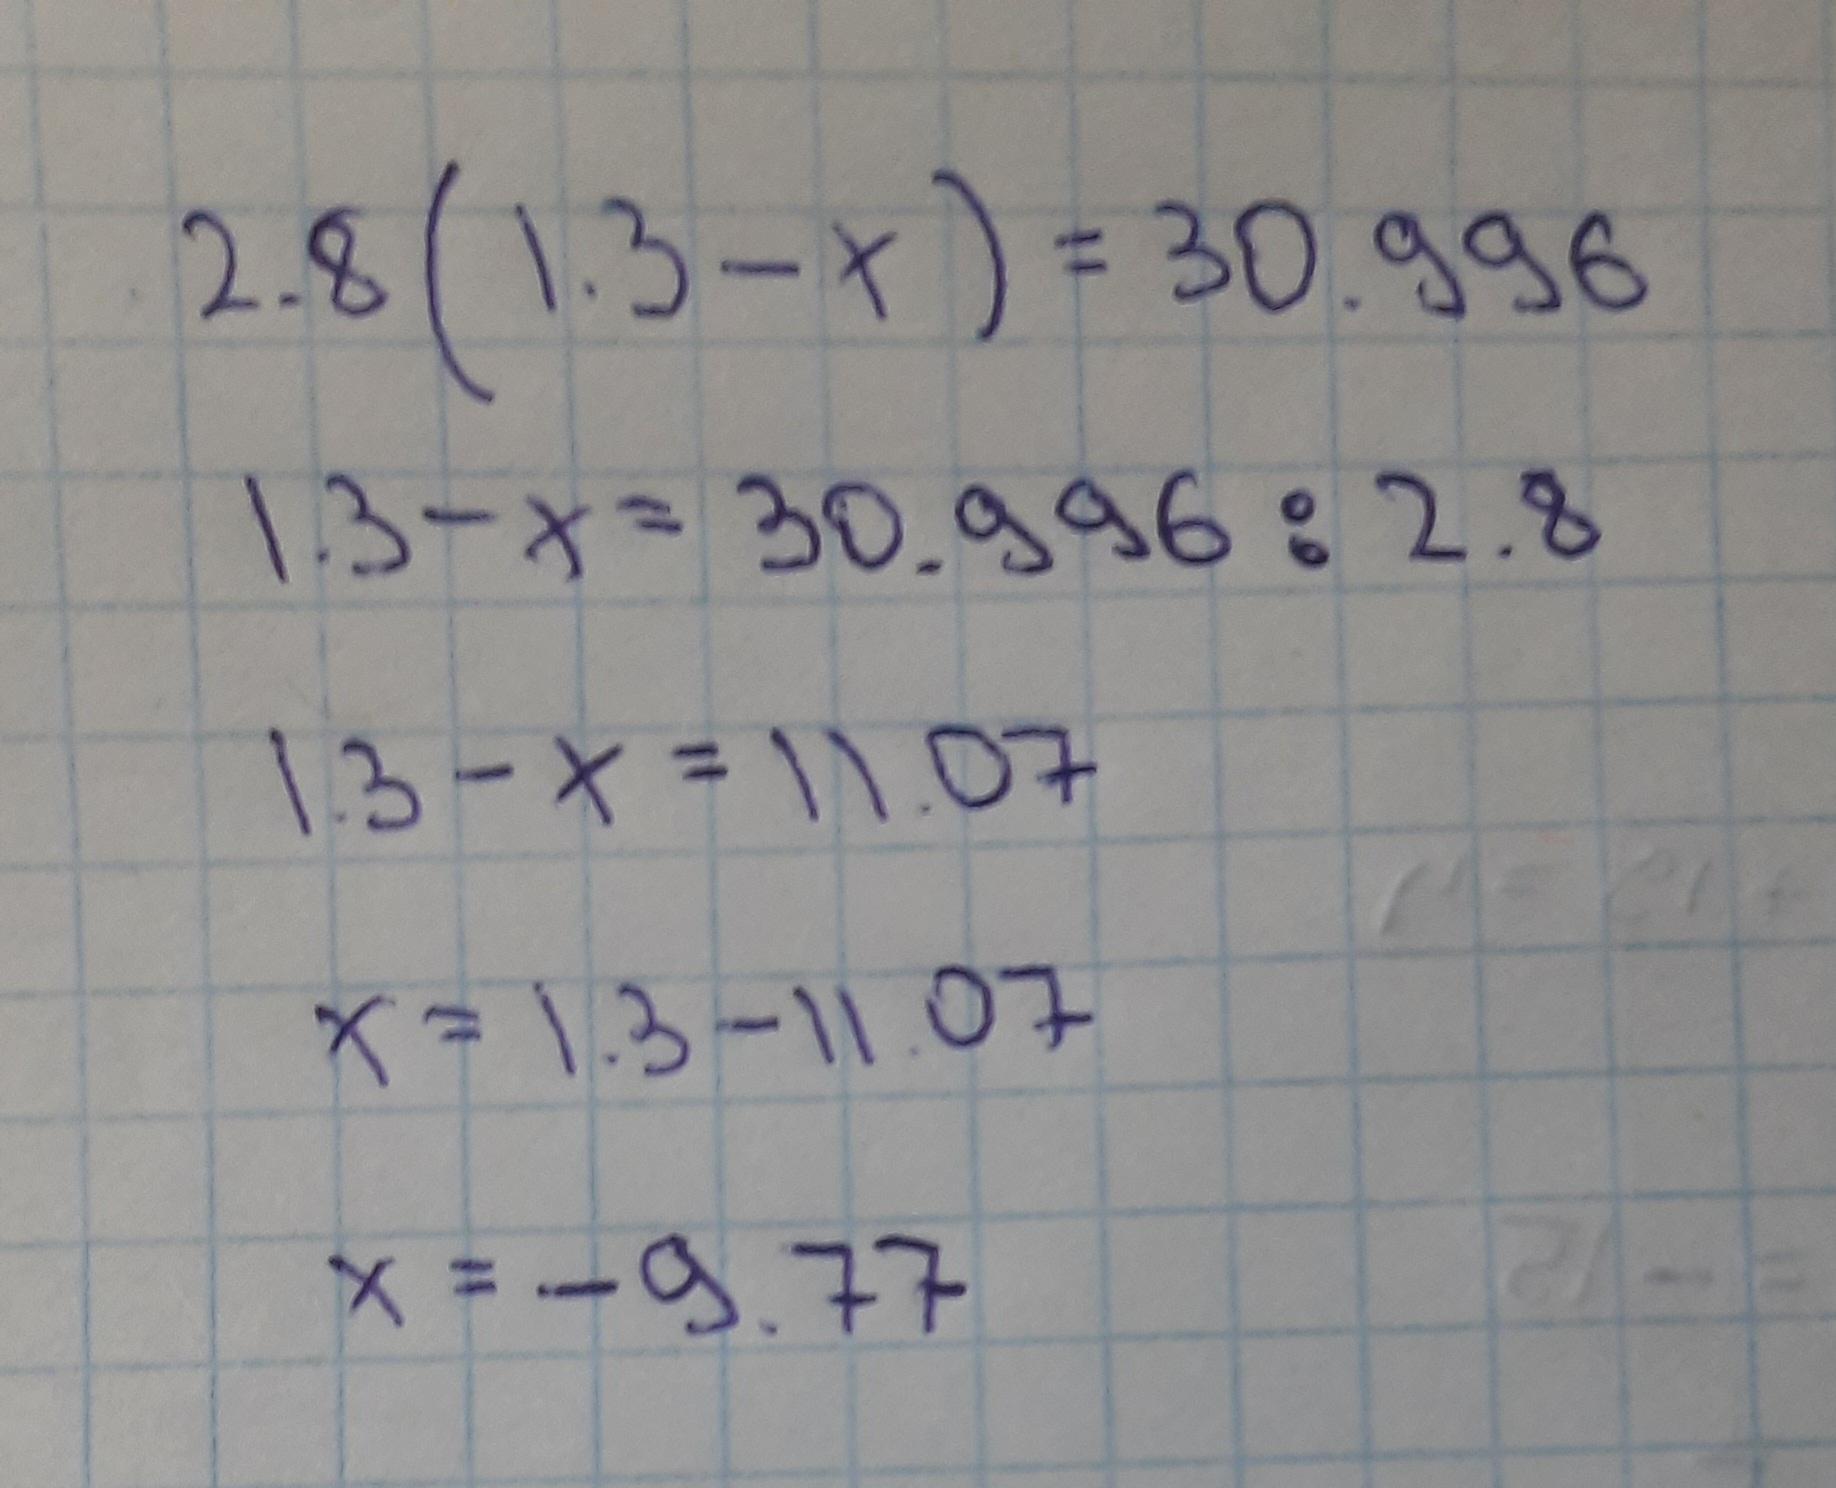 2.8(1.3-x)=30.996
1.3-x=30.996:2.8
1.3-x=11.07
x=1.3-11.07
x=-9.77